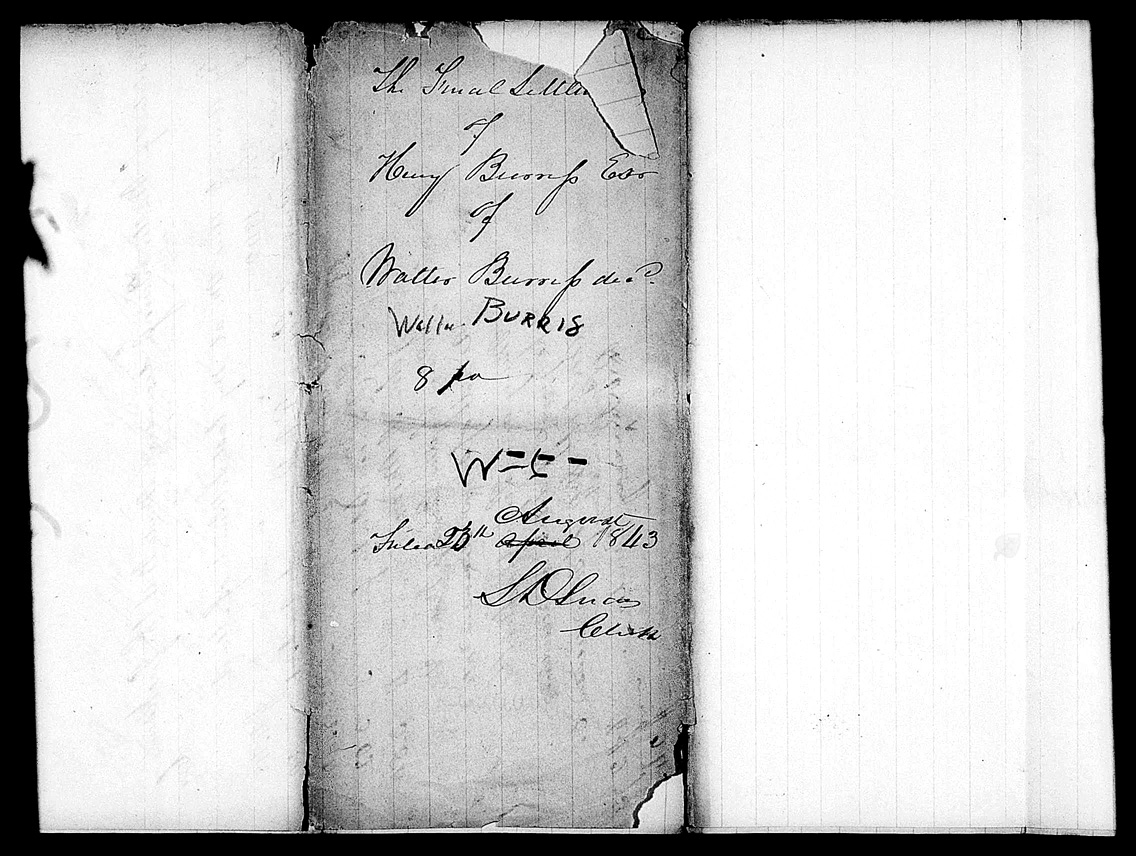 The Final Settlem
of
Henry Burress Exr
of
Walter Burress decd.
Walter BURRIS
8 pa
August
Filed 28th April 1843
Clerk